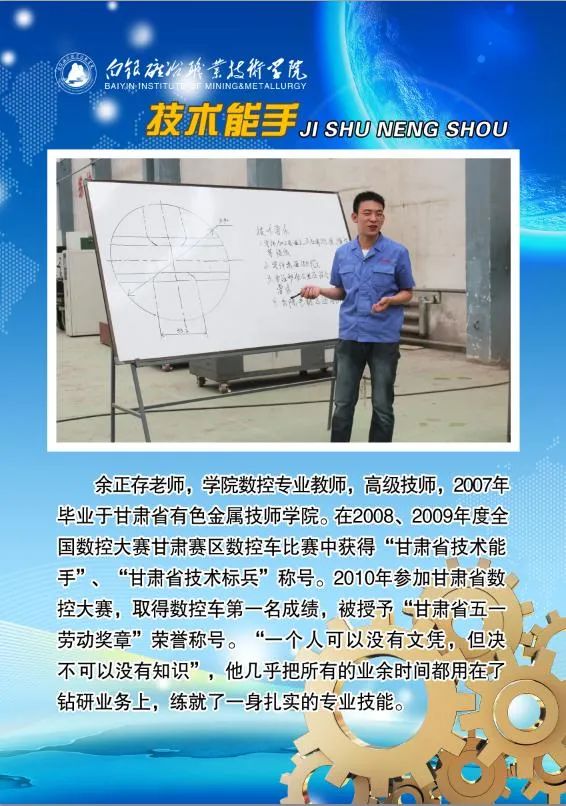 白银矿冶职业技术学院
BAIYIN INSTITUTE OF MINING&METALLURGY
技术能手 JI SHU NENG SHOU
技术要求
余正存老师，学院数控专业教师，高级技师，2007年
毕业于甘肃省有色金属技师学院。在2008、2009年度全
国数控大赛甘肃赛区数控车比赛中获得“甘肃省技术能
手”、“甘肃省技术标兵”称号。2010年参加甘肃省数
控大赛，取得数控车第一名成绩，被授予“甘肃省五一
劳动奖章”荣誉称号。“一个人可以没有文凭，但决
不可以没有知识”，他几乎把所有的业余时间都用在了
钻研业务上，练就了一身扎实的专业技能。